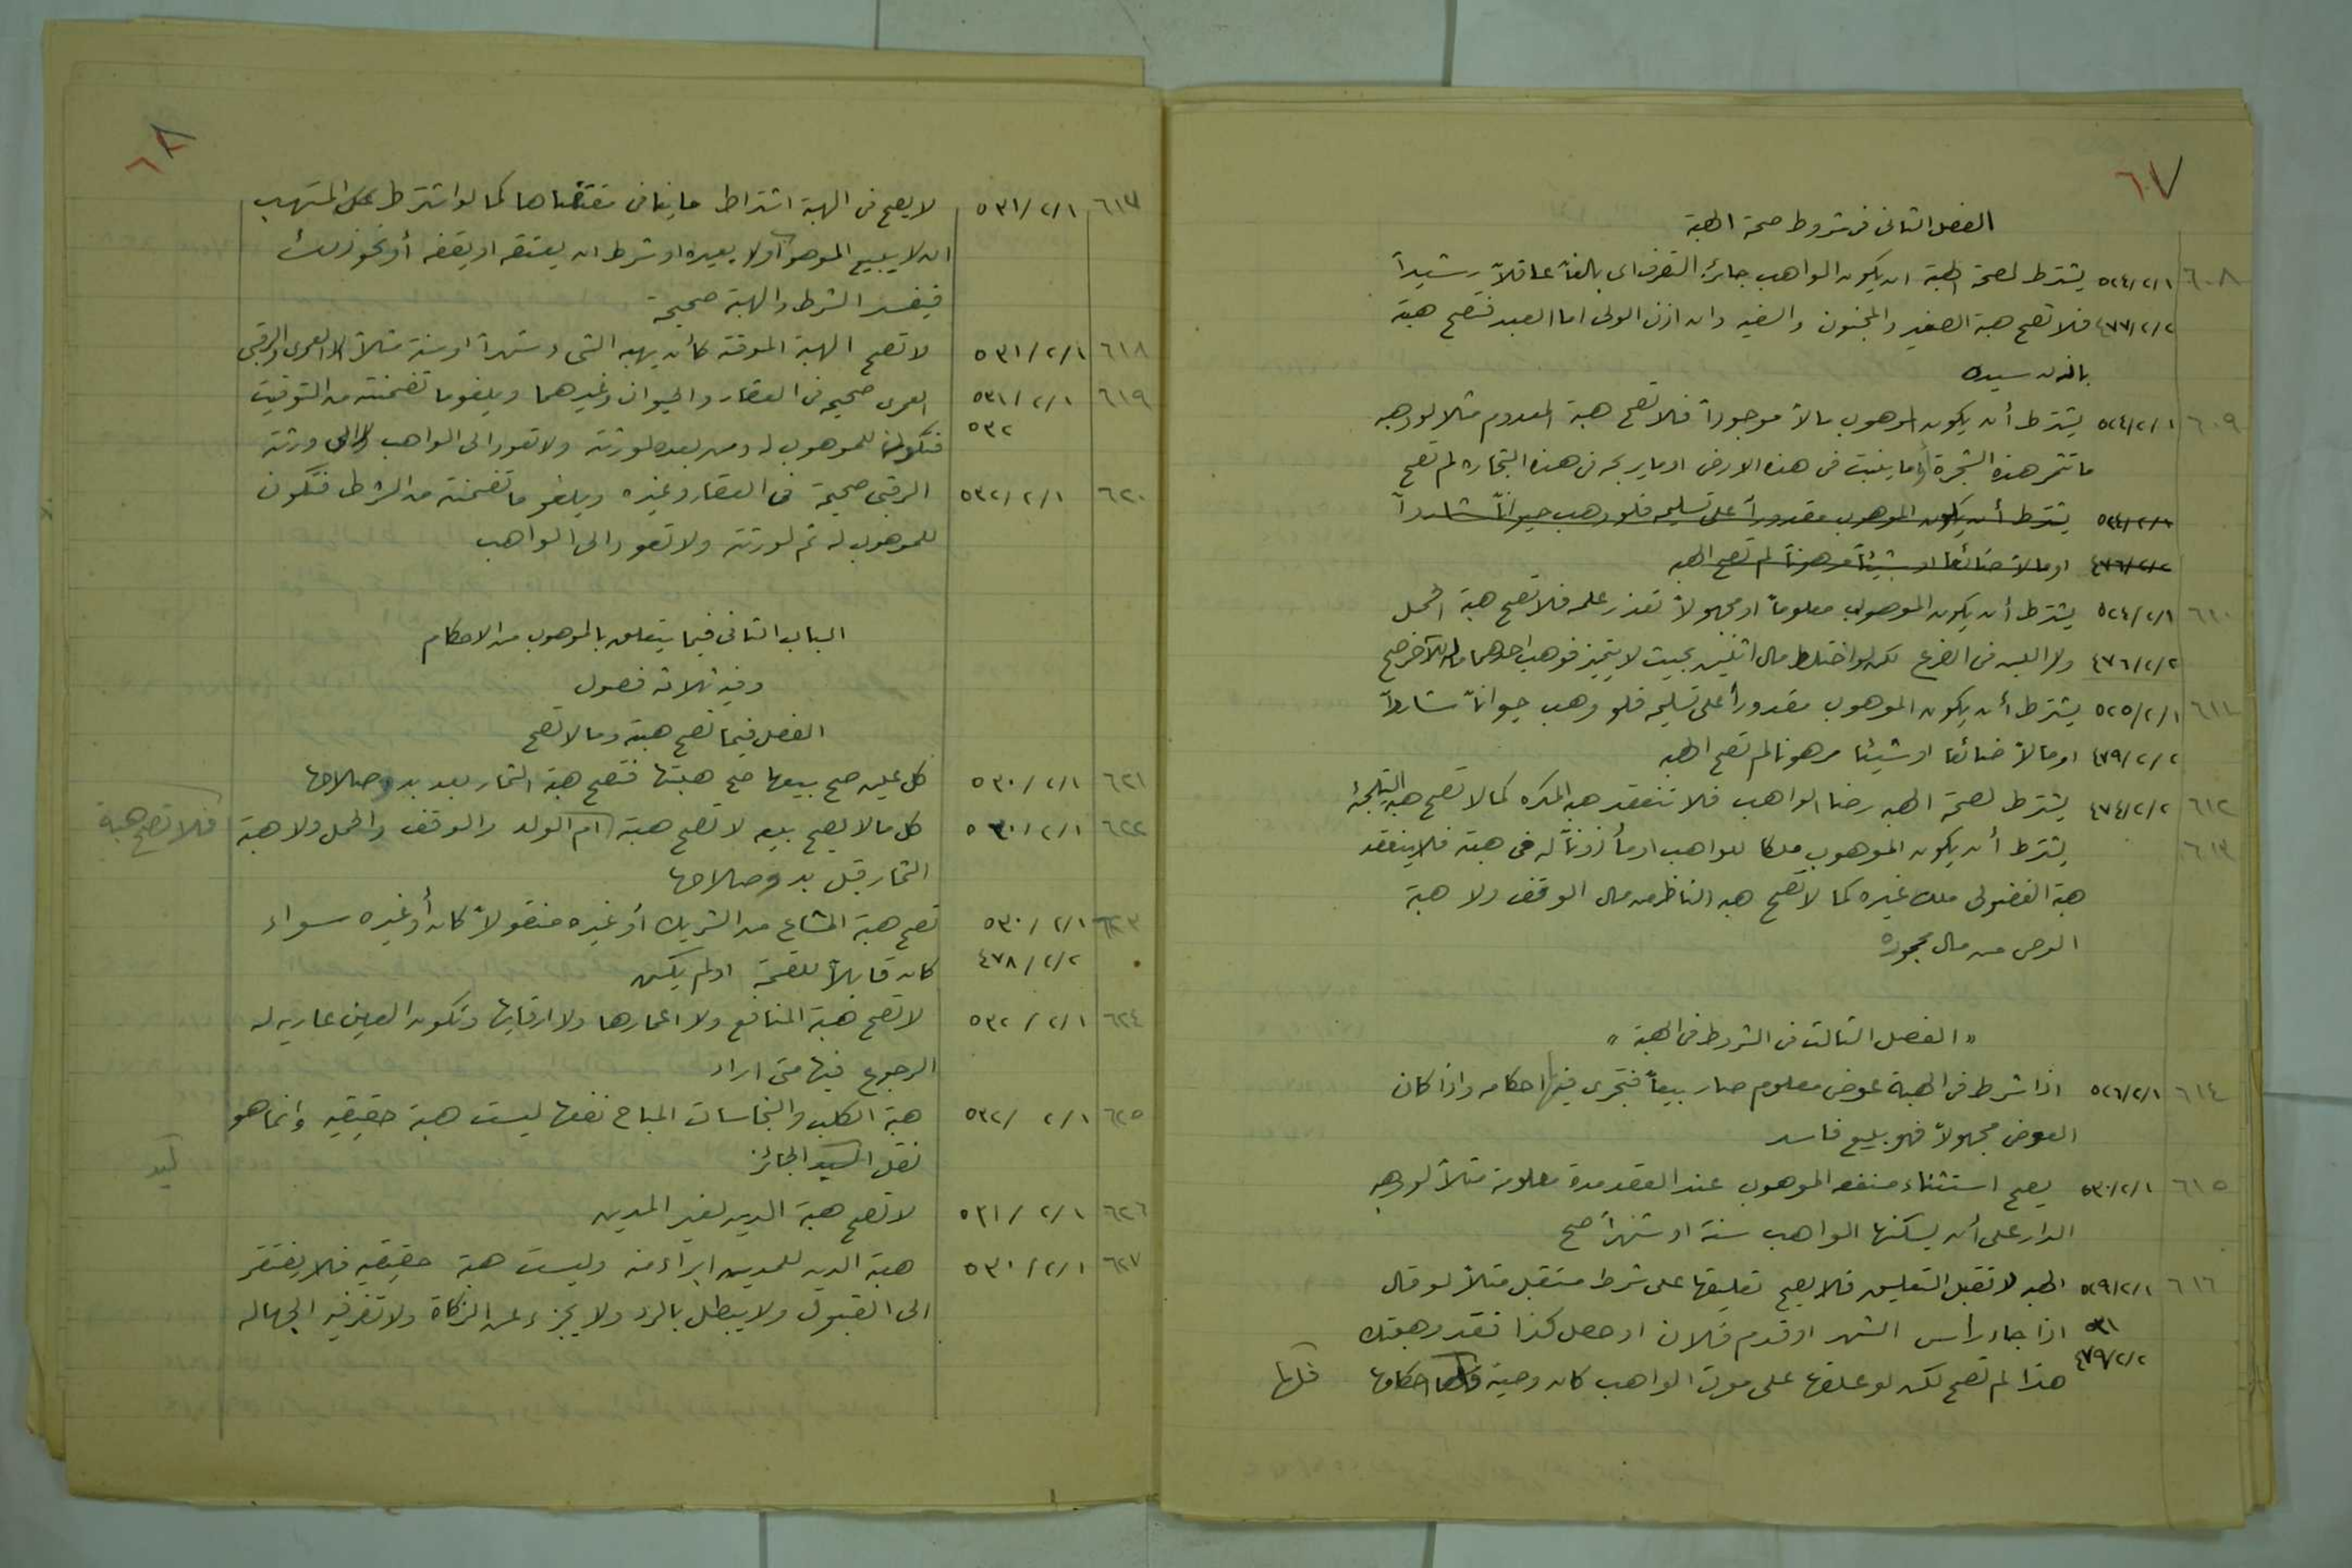 ٦٧
الفصل الثانى فى شروط صحة الهبة
٦٠٨ ٥٢٤/٢/١ يشترط لصحة الهبة ان يكون الواهب جائز التصرف اى بالغاً عاقلاً رشيداً
٤٧٧/٢/٢ فلا تصح هبة الصغير والمجنون والسفيه وان اذن الولى اما العبد فتصح هبة
باذن سيده
٦٠٩ ٥٢٤/٢/١ يشترط أن يكون الموهوب مالاً موجوداً فلا تصح هبة المعدوم مثلا لو وهبه
ما تثمر هذه الشجرة أو ما ينبت فى هذه الارض او ما يربحه فى هذه التجارة لم تصح
٥٢٤/٢/١ يشترط أن يكون الموهوب مقدوراً على تسليمه فلو وهب حيواناً شارداً
٤٧٦/٢/٢ او مالاً ضائعاً او شيئاً مرهوناً لم تصح الهبه
٦١٠ ٥٢٤/٢/١ يشترط أن يكون الموهوب معلوماً او مجهولاً تعذر علمه فلا تصح هبة الحمل
٤٧٦/٢/٢ ولا اللبن فى الضرع لكن لو اختلط مال اثنين بحيث لا يتميز فوهب احدهما ماله للآخر صح
٦١١ ٥٢٥/٢/١ يشترط أن يكون الموهوب مقدوراً على تسليمه فلو وهب حيواناً شارداً
٤٧٩/٢/٢ او مالاً ضائعا او شيئا مرهونا لم تصح الهبه
٦١٢ ٤٧٤/٢/٢ يشترط لصحة الهبه رضا الواهب فلا تنعقد هبه المكره كما لا تصح هبه التلجئة
٦١٣ يشترط أن يكون الموهوب ملكا للواهب او مأذوناً له فى هبته فلا ينعقد
هبة الفضولى ملك غيره كما لا تصح هبه الناظر من مال الوقف ولا هبة
الوصى من مال محجوره
« الفصل الثالث فى الشروط فى الهبة »
٦١٤ ٥٢٦/٢/١ اذا شرط فى الهبة عوض معلوم صار بيعاً فتجرى فيها احكامه واذا كان
العوض مجهولاً فهو بيع فاسد
٦١٥ ٥٣٠/٢/١ يصح استثناء منفعه الموهوب عند العقد مدة معلومة مثلاً لو وهبه
الدار على أن يسكنها الواهب سنة او شهراً صح
٦١٦ ٥٢٩/٢/١ الهبه لا تقبل التعليق فلا يصح تعليقها على شرط مستقبل مثلاً لو قال
٥٣١ اذا جاء راس الشهر او قدم فلان او حصل كذا فقد وهبتك
٤٧٩/٢/٢ هذا لم تصح لكن لو علقها على موت الواهب كان وصية فلها احكامها فلها
٦٨
٦١٧ ٥٣١/٢/١ لا يصح فى الهبة اشتراط ما ينافى مقتضاها كما لو اشترط على المتهب
ان لا يبيع الموهوب أو لا يعيره او شرط ان يعتقه او يقفه أو نحو ذلك
فيفسد الشرط والهبة صحيحة
٦١٨ ٥٣١/٢/١ لا تصح الهبة الموقته كأن يهبه الشىء شهراً او سنة مثلاً الا العمرى والرقبى
٦١٩ ٥٣١/٢/١ العمرى صحيحه فى العقار والحيوان وغيرهما ويلغو ما تضمنته من التوقيت
٥٣٢ فتكون للموهوب له ومن بعده لورثته ولا تعود الى الواهب ولا الى ورثته
٦٢٠ ٥٣٢/٢/١ الرقبى صحيحة فى العقار وغيره ويلغو ما تضمنته من الشرط فتكون
للموهوب له ثم لورثته ولا تعود الى الواهب
الباب الثانى فيما يتعلق بالموهوب من الاحكام
وفيه ثلاثة فصول
الفصل فيما تصح هبته وما لا تصح
٦٢١ ٥٣٠/٢/١ كل عين صح بيعها صح هبتها فتصح هبة الثمار بعد بدو صلاحها
٦٢٢ ٥٣٠/٢/١ كل ما لا يصح بيعه لا تصح هبته ام الولد والوقف والحمل ولا هبة فلا تصح هبة
الثمار قبل بدو صلاحها
٦٢٣ ٥٣٠/٢/١ تصح هبة المشاع من الشريك أو غيره منقولاً كان أو غيره سواء
٤٧٨/٢/٢ كان قابلاً للقسمة او لم يكن
٦٢٤ ٥٣٢/٢/١ لا تصح هبة المنافع ولا اعمارها ولا ارقابها وتكون العين عاريه له
الرجوع فيها متى اراد
٦٢٥ ٥٣٢/٢/١ هبة الكلب والنجاسات المباح نفعها ليست هبة حقيقيه وانما هو
نقل اليد الجائز ليد
٦٢٦ ٥٣١/٢/١ لا تصح هبة الدين لغير المدين
٦٢٧ ٥٣٠/٢/١ هبة الدين للمدين ابراء منه وليست هبة حقيقيه فلا يفتقر
الى القبول ولا يبطل بالرد ولا يجزء عن الزكاة ولا تضر فيه الجهاله